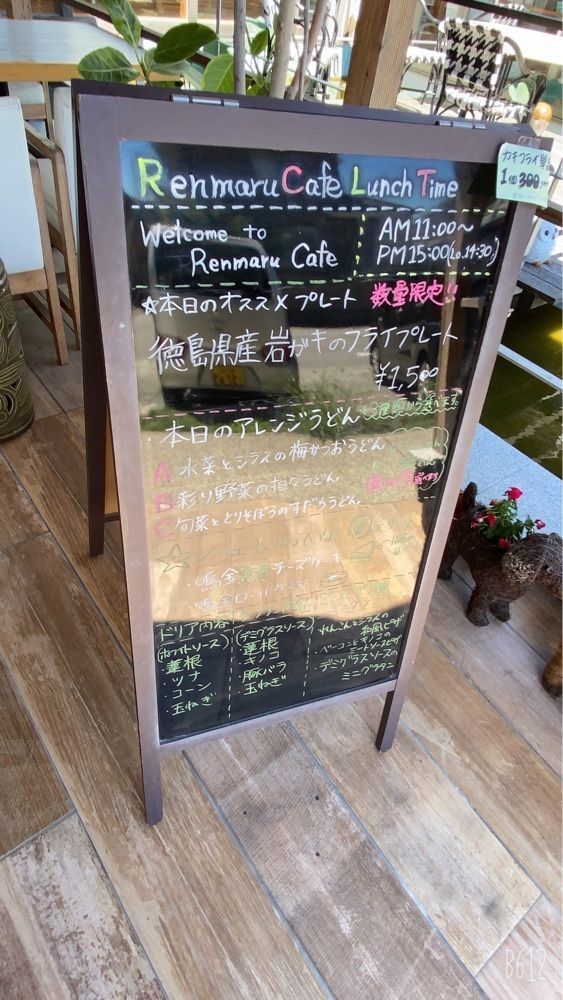 カキフライ単品
1個 300
Renmaru Cafe Lunch Time
Welcome to
Renmaru Cafe
AM11:00〜
PM15:00(Lo.14:30)
☆本日のオススメプレート 数量限定!!
徳島県産岩ガキのフライプレート
¥1,500
・本日のアレンジうどん 3種類から選べます
A 水菜とシラスの梅かつおうどん
B 彩り野菜の担々うどん
C 旬菜ととりそぼろのすだちうどん
・鳴金 チーズケーキ
・鳴金ロールケーキ
ドリア内容
(ホワイトソース)
・蓮根
・ツナ
・コーン
・玉ねぎ
(デミグラスソース)
・蓮根
・キノコ
・豚バラ
・玉ねぎ
・れんこんとシラスの
和風ピザ
・ベーコンとキノコの
ミートソースピザ
・デミグラスソースの
ミニグラタン
B612